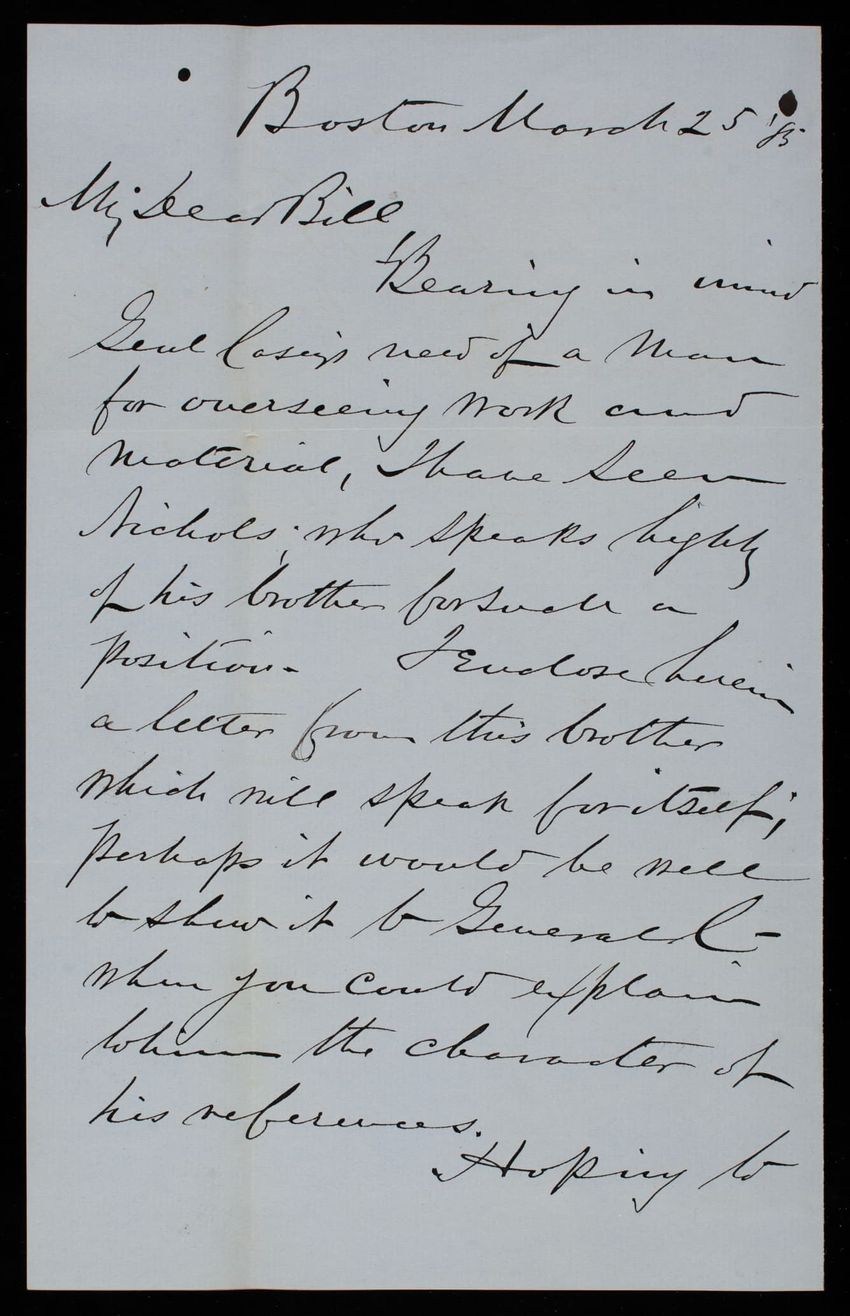 Boston March 25 '85
My Dear Bill
Bearing in mind
Genl Casey's need of a man
for overseeing work and
material, I have seen
Nichols; who speaks highly
of his brother for such a
position - I Enclose herein
a letter from this brother
which will speak for itself;
perhaps it would be well
to shew it to General C-
when you could explain
to him the character of
his references.
Hoping to